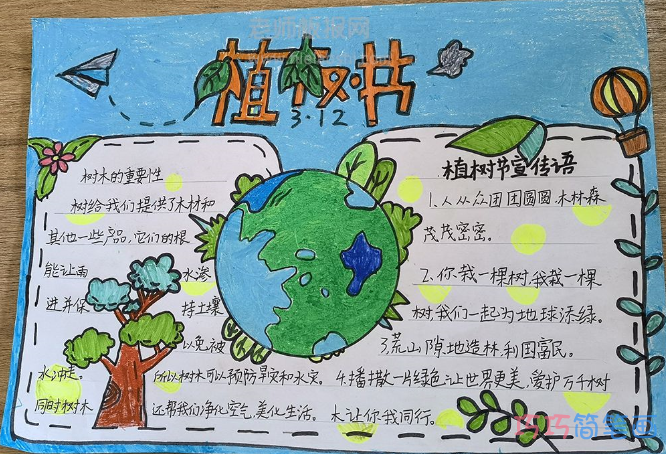 植树书
3·12
树木的重要性
树给我们提供了木材和
其他一些产品,它们的根
能让雨 水渗
进并保 持土壤
以免被
水冲走。 所以树木可以预防旱灾和水灾。
同时树木 还帮我们净化空气,美化生活。
植树节宣传语
1.人从众团团圆圆,木林森
茂茂密密。
2.你栽一棵树,我栽一棵
树,我们一起为地球添绿。
3.荒山隙地造林,利国富民。
4.播撒一片绿色,让世界更美,爱护万千树
木让你我同行。
巧巧简笔画